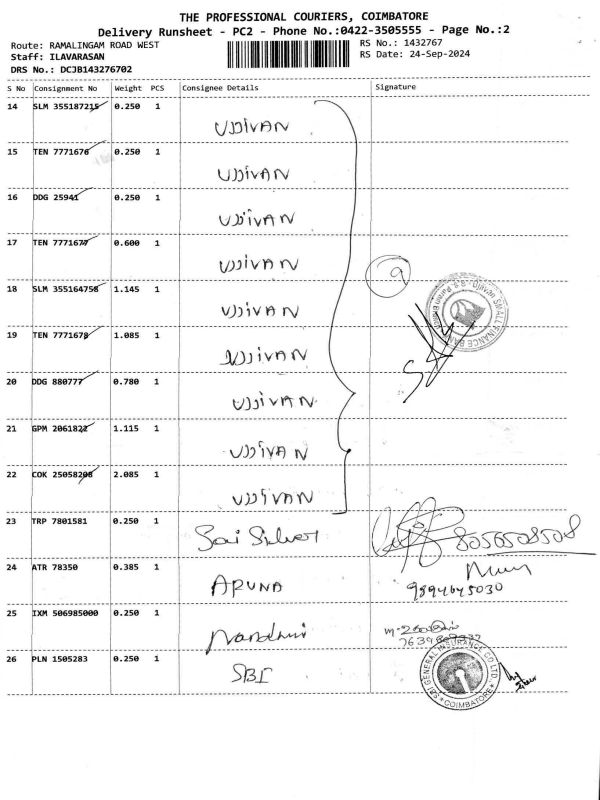 THE PROFESSIONAL COURIERS, COIMBATORE
Delivery Runsheet - PC2 - Phone No.:0422-3505555 - Page No.:2
Route: RAMALINGAM ROAD WEST
RS No.: 1432767
Staff: ILAVARASAN
RS Date: 24-Sep-2024
DRS No.: DCJB143276702
S No Consignment No Weight PCS Consignee Details Signature
14 SLM 355187215 0.250 1
UJJIVAN
15 TEN 7771676 0.250 1
UJJIVAN
16 DDG 25941 0.250 1
UJJIVAN
17 TEN 7771677 0.600 1
UJJIVAN
9
18 SLM 355164758 1.145 1
UJJIVAN
SMALL FINANCE BANK
19 TEN 7771678 1.085 1
UJJIVAN
20 DDG 880777 0.780 1
UJJIVAN
21 GPM 2061822 1.115 1
UJJIVAN
22 COK 25058208 2.085 1
UJJIVAN
23 TRP 7801581 0.250 1
Sai Silver 8056508508
24 ATR 78350 0.385 1
ARUNA 9894645030
25 IXM 506985000 0.250 1
Nandhini
26 PLN 1505283 0.250 1
SBI
SBI GENERAL INSURANCE CO LTD. COIMBATORE